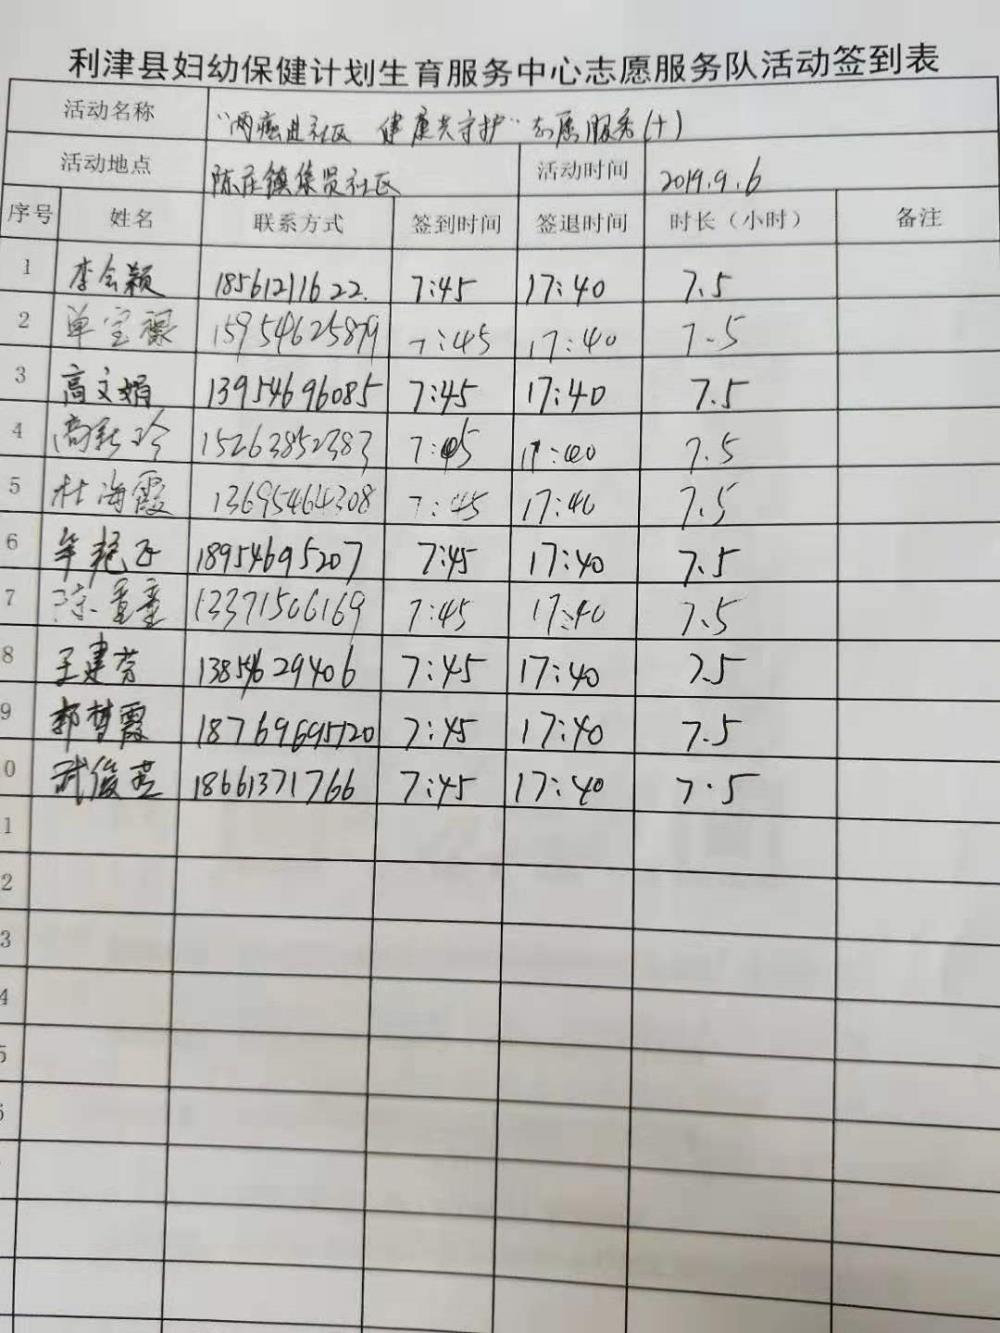 利津县妇幼保健计划生育服务中心志愿服务队活动签到表
活动名称 "两癌进社区 健康共守护"志愿服务(十)
活动地点 陈庄镇集贤社区 活动时间 2019.9.6
序号 姓名 联系方式 签到时间 签退时间 时长（小时） 备注
1 李会颖 18561211622. 7:45 17:40 7.5
2 单宝禄 15954625879 7:45 17:40 7.5
3 高文娟 13954696085 7:45 17:40 7.5
4 高新珍 15263852383 7:45 17:40 7.5
5 杜海霞 13695464308 7:45 17:40 7.5
6 18954695207 7:45 17:40 7.5
7 陈重重 13371506169 7:45 17:40 7.5
8 王建芳 13854629406 7:45 17:40 7.5
9 郭梦霞 18769695120 7:45 17:40 7.5
0 武俊英 18661371766 7:45 17:40 7.5
1
2
3
4
5
6